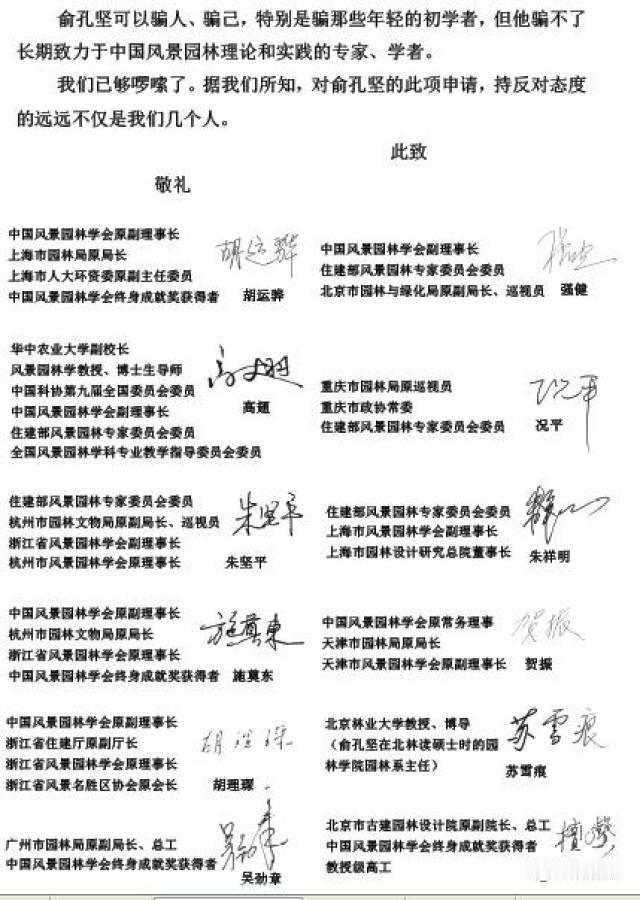 俞孔坚可以骗人、骗己，特别是骗那些年轻的初学者，但他骗不了
长期致力于中国风景园林理论和实践的专家、学者。
我们已够啰嗦了。据我们所知，对俞孔坚的此项申请，持反对态度
的远远不仅是我们几个人。
此致
敬礼
中国风景园林学会原副理事长
上海市园林局原局长
上海市人大环资委原副主任委员
中国风景园林学会终身成就奖获得者 胡运骅
胡运骅
中国风景园林学会副理事长
住建部风景园林专家委员会委员
北京市园林与绿化局原副局长、巡视员 强健
华中农业大学副校长
风景园林学教授、博士生导师
中国科协第九届全国委员会委员
中国风景园林学会副理事长
住建部风景园林专家委员会委员
全国风景园林学科专业教学指导委员会委员
高翅
重庆市园林局原巡视员
重庆市政协常委
住建部风景园林专家委员会委员 况平
况平
住建部风景园林专家委员会委员
杭州市园林文物局原副局长、巡视员
浙江省风景园林学会副理事长
杭州市风景园林学会原理事长 朱坚平
朱坚平
住建部风景园林专家委员会委员
上海市风景园林学会副理事长
上海市园林设计研究总院董事长 朱祥明
中国风景园林学会原副理事长
杭州市园林文物局原局长
浙江省风景园林学会原理事长
中国风景园林学会终身成就奖获得者 施奠东
施奠东
中国风景园林学会原常务理事
天津市园林局原局长
天津市风景园林学会原副理事长 贺振
贺振
中国风景园林学会原副理事长
浙江省住建厅原副厅长
浙江省风景园林学会原理事长
浙江省风景名胜区协会原会长 胡理琛
胡理琛
北京林业大学教授、博导
（俞孔坚在北林读硕士时的园
林学院园林系主任）
苏雪痕
苏雪痕
广州市园林局原副局长、总工
中国风景园林学会终身成就奖获得者
吴劲章
北京市古建园林设计院原副院长、总工
中国风景园林学会终身成就奖获得者
教授级高工
檀馨